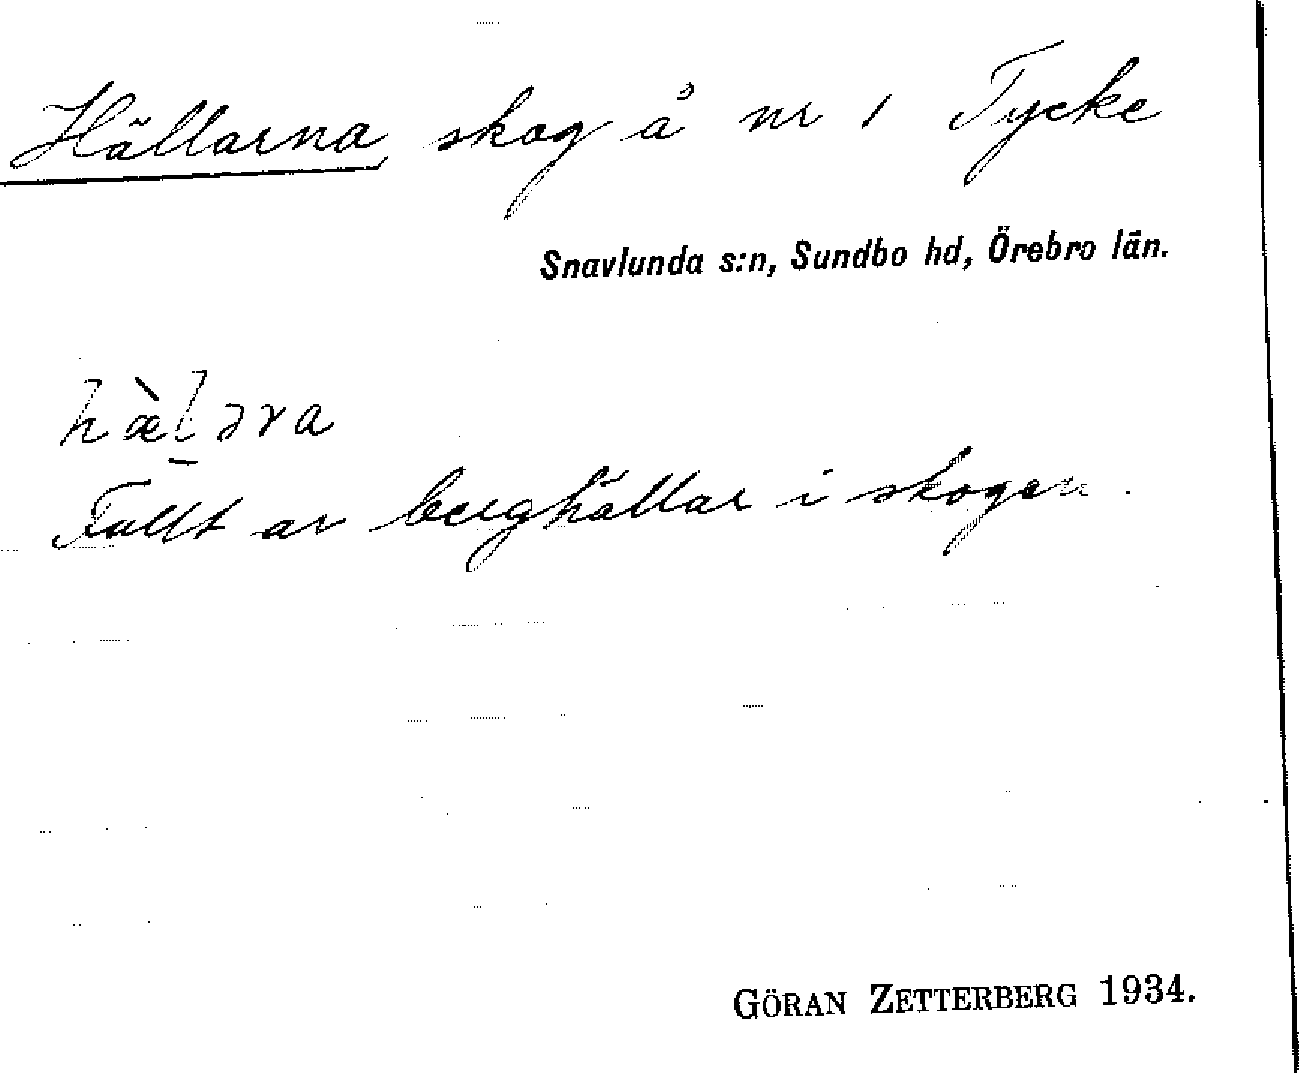 Hällarna skog å nr 1 Tycke
Snavlunda s:n, Sundbo hd, Örebro län.
hæ̀l̠əra
Fullt av berghällar i skogen.
GÖRAN ZETTERBERG 1934.